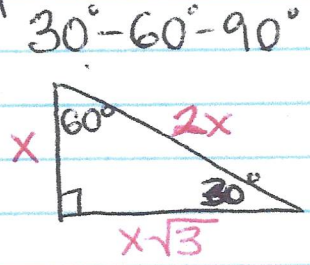 30°-60°-90°
60°
2x
x
30°
x√3